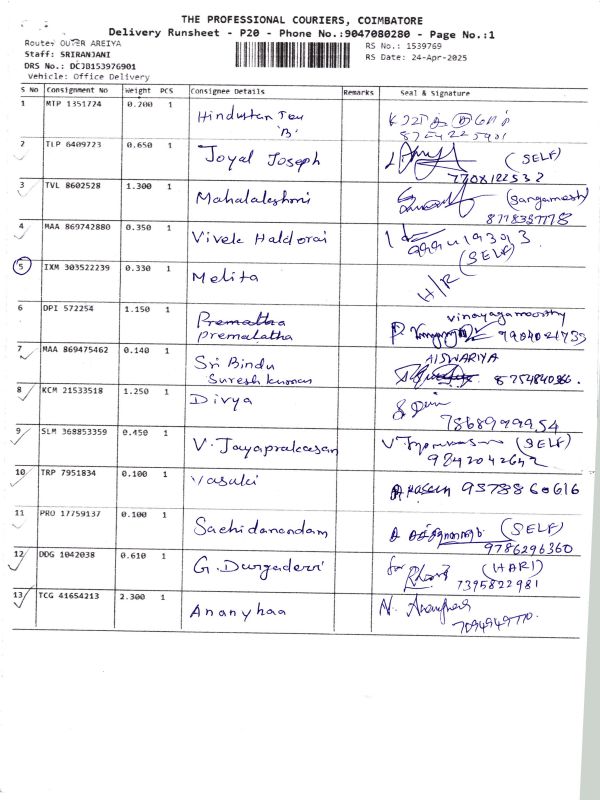 THE PROFESSIONAL COURIERS, COIMBATORE
Delivery Runsheet - P20 - Phone No.:9047080280 - Page No.:1
Route: OUTER AREIYA
RS No.: 1539769
Staff: SRIRANJANI
RS Date: 24-Apr-2025
DRS No.: DCJB153976901
Vehicle: Office Delivery
S No Consignment No Weight PCS Consignee Details Remarks Seal & Signature
1 MTP 1351724 0.200 1 Hindustan Tea
'B'
2 TLP 6409723 0.650 1 Joyal Joseph (SELF)
3 TVL 8602528 1.300 1 Mahalakshmi (Sangamesh)
4 MAA 869742880 0.350 1 Vivek Haldorai
(SELF)
5 IXM 303522239 0.330 1 Melita H/R
6 DPI 572254 1.150 1 Prematha vinayagamoorthy
premalatha
7 MAA 869475462 0.140 1 Sri Bindu AISWARIYA
Sureshkumar
8 KCM 21533518 1.250 1 Divya
7868999954
9 SLM 368853359 0.450 1 V. Jayaprakasan (SELF)
9842042642
10 TRP 7951834 0.100 1 Vasuki 9578860616
11 PRO 17759137 0.100 1 Sachidanandam (SELF)
9786296360
12 DDG 1042038 0.610 1 G. Durgadevi for (HARI)
7395822981
13 TCG 41654213 2.300 1 Ananyhaa N.